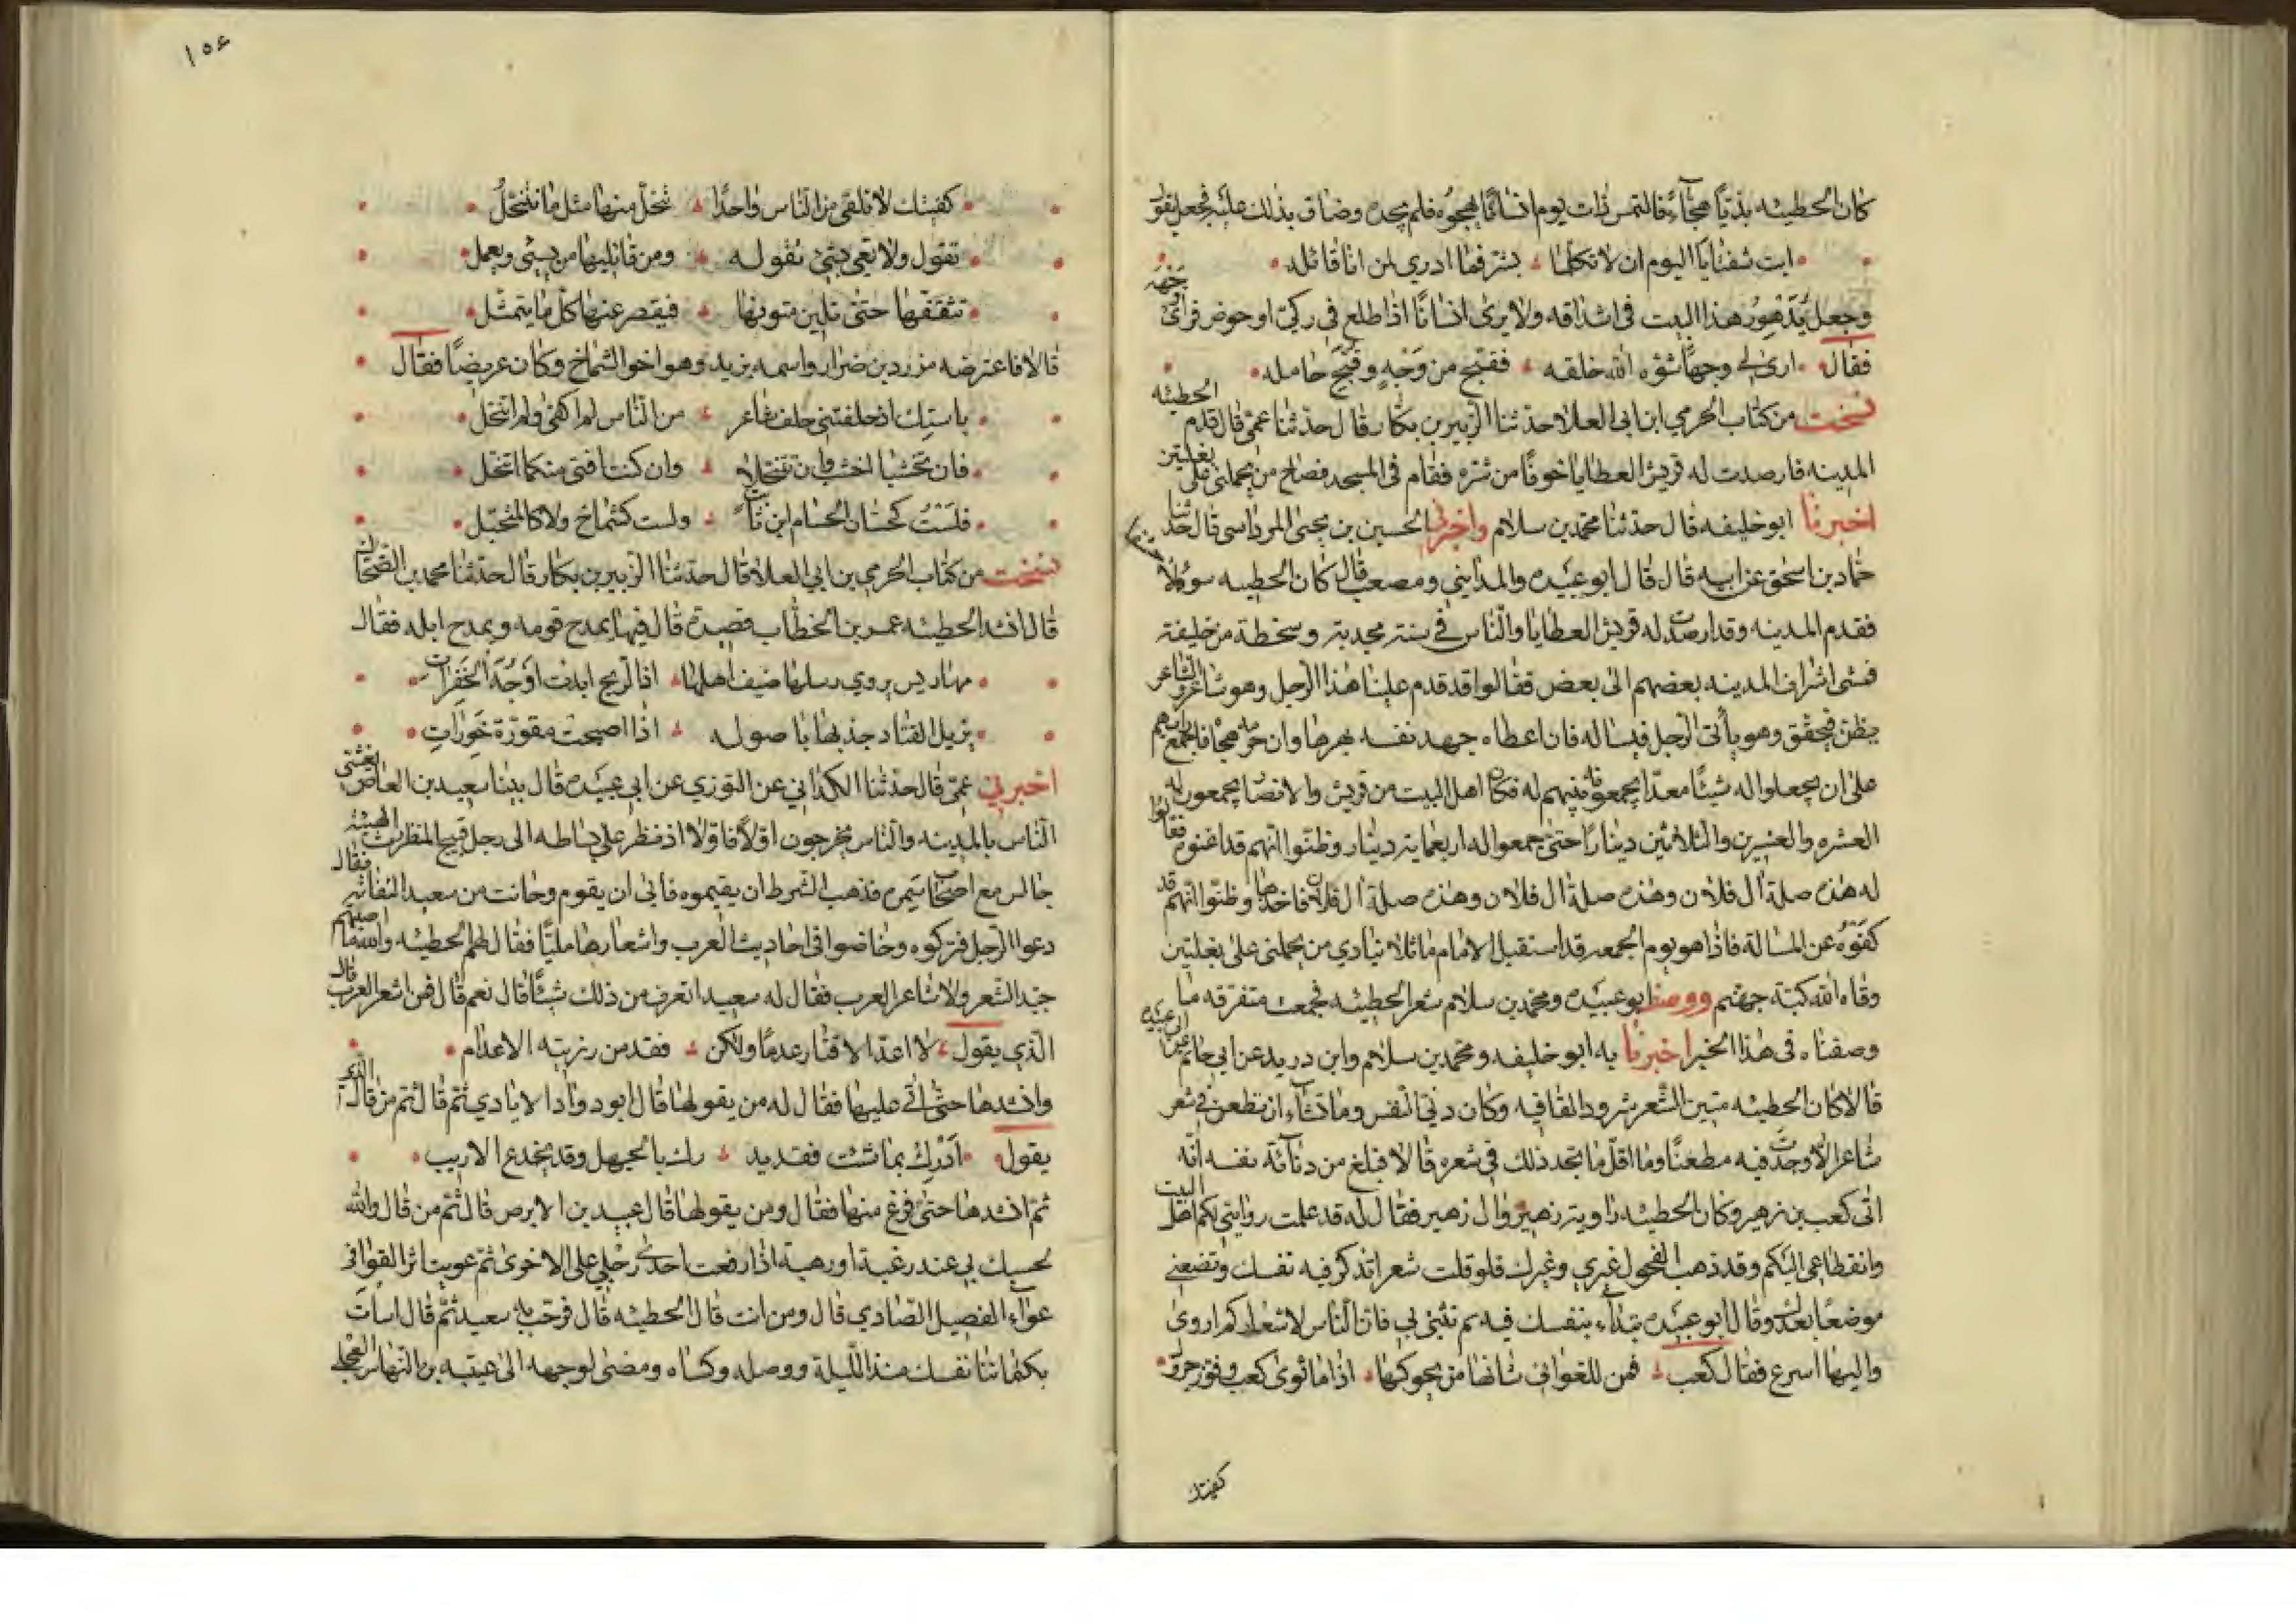 كان الحطيئه بذيّا هجّآءً فالتمس ذات يوم انسانًا يهجوه فلم يجده وضاق بذلك عليه فجعل يقول
ابت شفتايا اليوم ان لا تكلما بشرّ فما ادري لمن انا قائله
وجعل يُدَهْوِرُ هذا البيت في اشداقه ولا يرى انسانًا اذا اطلع في ركيّ او حوض فرأى وجهه
فقال ارى لي وجهًا شوّه الله خلقه فقبّح من وَجْهٍ وقبّح حامله
نسخت من كتاب الحرمي ابن ابي العلا حدثنا الزبير بن بكّار قال حدثنا عمّي قال قدم الحطيئه
المدينه فارصدت له قريش العطايا خوفًا من شرّه فقام في المسجد فصاح من يحملني على بغلتين
اخبرنا ابو خليفه قال حدثنا محمد بن سلام واخبرني الحسين بن يحيى المرداسي قال حدّثنا
حمّاد بن اسحٰق عن ابيه قال قال ابو عبيده والمدايني ومصعب قال كان الحطيه سوؤلا
فقدم المدينه وقد ارصدت له قريش العطايا والنّاس في سنة مجدبة وسخطة من خليفة
فمشى اشراف المدينه بعضهم الى بعض فقالوا قد قدم علينا هذا الرجل وهو شاعر والشاعر
يظنّ فيحقّق وهو يأتي الرجل فيساله فان اعطاه جهد نفسه بهرها وان حرمه هجاه فاجمع رأيهم
على ان يجعلوا له شيئًا معدّا يجمعونه بينهم له فكان اهل البيت من قريش والانصار يجمعون له
العشره والعشرين والثلاثين دينارًا حتى جمعوا له اربعماية دينار وظنّوا انّهم قد اغنوه فقالوا
له هذه صلة آل فلان وهذه صلة آل فلان وهذه صلة آل فلان فاخذها وظنّوا انهم قد
كفوهُ عن المسالة فاذا هو يوم الجمعه قد استقبل الامام ماثلا ينادي من يحملني على بغلتين
وقاه الله كبّة جهنم ووصف ابو عبيده ومحمد بن سلام شعر الحطيئه فجمعت متفرقه ما
وصفناه في هذا الخبر اخبرنا به ابو خليفه ومحمد بن سلام وابن دريد عن ابي حاتم عن ابي عبيده
قالا كان الحطيئه متين الشّعر شرود القافيه وكان دنيّ النفس وما تشآء ان تطعن في شعر
شاعر الّا وجدت فيه مطعنًا وما اقلّ ما تجد ذلك في شعره قالا فبلغ من دنآئة نفسه انّه
اتى كعب بن زهير وكان الحطيئه راوية زهير وآل زهير فقال له قد علمت روايتي لكم اهل البيت
وانقطاعي اليكم وقد ذهب الفحول غيري وغيرك فلو قلت شعرا تذكر فيه نفسك وتضعني
موضعًا بعدك وقال ابو عبيده تبدأء بنفسك فيه ثم تثني بي فان النّاس لاشعاركم اروى
واليها اسرع فقال كعب فمن للقوافي شانها من يحوكها اذا ما ثوى كعب وفوّز جرول
كفيتك
١٥٤
كفيتك لا تلقى من النّاس واحدًا تنخّل منها مثل ما نتنخّلُ
نقول ولا نعيى بشئ نقوله ومن قائليها من يسئى ويعمل
نثقّفها حتى تلين متونها فيقصر عنها كلّ ما يتمثّل
قالا فاعترضه مزرد بن ضرار واسمه يزيد وهو اخو الشماخ وكان عريضًا فقال
باستِك اذ خلفتني خلف شاعر من النّاس لم اكفئ ولم اتنخّل
فان تخشبا اخشب وان تتنخّلا وان كنت افتى منكما اتنخّل
فلَسْتُ كحسّان الحسام ابن ثابت ولست كشماخ ولا كالمخبّل
نسخت من كتاب الحرمي بن ابي العلا قال حدثنا الزبير بن بكار قال حدثنا محمد بن الضّحاك
قال انشد الحطيئه عمر بن الخطّاب قصيدة قال فيها يمدح قومه ويمدح ابله فقال
مهاريس يروي رسلها ضيف اهلها اذا الريح ابدت اوْجُهَ الخَفِراتِ
يزيل القتاد جذبها باصوله اذا اصبحت مقورّة خَوِرَاتِ
اخبرني عمّي قال حدثنا الكراني عن التوزي عن ابي عبيده قال بينا سعيد بن العاص يغشي
النّاس بالمدينه والنّاس يخرجون اوّلًا فاوّلا اذ نظر على بساطه الى رجل قبيح المنظر رث الهيئة
جالس مع اصحاب سمره فذهب الشرط ان يقيموه فابى ان يقوم وحانت من سعيد التفاتة فقال
دعوا الرجل فتركوه وخاضوا في احاديث العرب واشعارها مليّا فقال لهم الحطيئه والله ما اصبتم
جيّد الشعر ولا شاعر العرب فقال له سعيد اتعرف من ذلك شيئًا قال نعم قال فمن اشعر العرب قال
الّذي يقول لا اعدّ الاقتار عدمًا ولكن فقد من رزيته الاعدام
وانشدها حتى اتى عليها فقال له من يقولها قال ابو دوأد الايادي ثم قال ثم من قال الذي
يقول اَدْرِك بما شئت فقد يد رك بالجهل وقد يخدع الاريب
ثم انشدها حتى فرغ منها فقال ومن يقولها قال عبيد بن الابرص قال ثم من قال والله
لحسبك بي عند رغبة او رهبة اذا رفعت احدى رجليّ على الاخرى ثم عويت اثر القوافي
عوآء الفصيل الصّادي قال ومن انت قال الحطيئه قال فرحّب به سعيد ثم قال اسأت
بكتماننا نفسك منذ الليلة ووصله وكساه ومضى لوجهه الى عتيبه بن النهاس العجلي